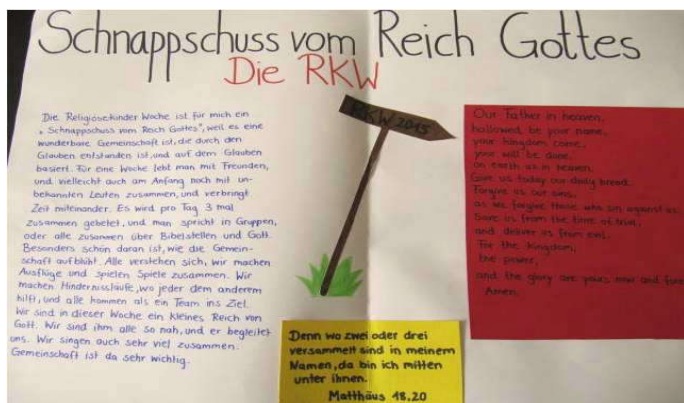 Schnappschuss vom Reich Gottes
Die RKW
Die Religiösekinder Woche ist für mich ein
„Schnappschuss vom Reich Gottes", weil es eine
wunderbare Gemeinschaft ist, die durch den
Glauben entstanden ist, und auf dem Glauben
basiert. Für eine Woche lebt man mit Freunden,
und vielleicht auch am Anfang noch mit un-
bekannten Leuten zusammen, und verbringt
Zeit miteinander. Es wird pro Tag 3 mal
zusammen gebetet, und man spricht in Gruppen,
oder alle zusammen über Bibelstellen und Gott.
Besonders schön daran ist, wie die Gemein-
schaft aufblüht. Alle verstehen sich, wir machen
Ausflüge und spielen Spiele zusammen. Wir
machen Hindernissläufe, wo jeder dem anderem
hilft, und alle kommen als ein Team ins Ziel.
Wir sind in dieser Woche ein kleines Reich von
Gott. Wir sind ihm alle so nah, und er begleitet
uns. Wir singen auch sehr viel zusammen.
Gemeinschaft ist da sehr wichtig.
RKW 2015
Denn wo zwei oder drei
versammelt sind in meinem
Namen, da bin ich mitten
unter ihnen.
Matthäus 18.20
Our Father in heaven,
hallowed be your name,
your kingdom come,
your will be done,
on earth as in heaven.
Give us today our daily bread.
Forgive us our sins,
as we forgive those who sin against us.
Save us from the time of trial,
and deliver us from evil.
For the kingdom,
the power,
and the glory are yours now and
Amen.